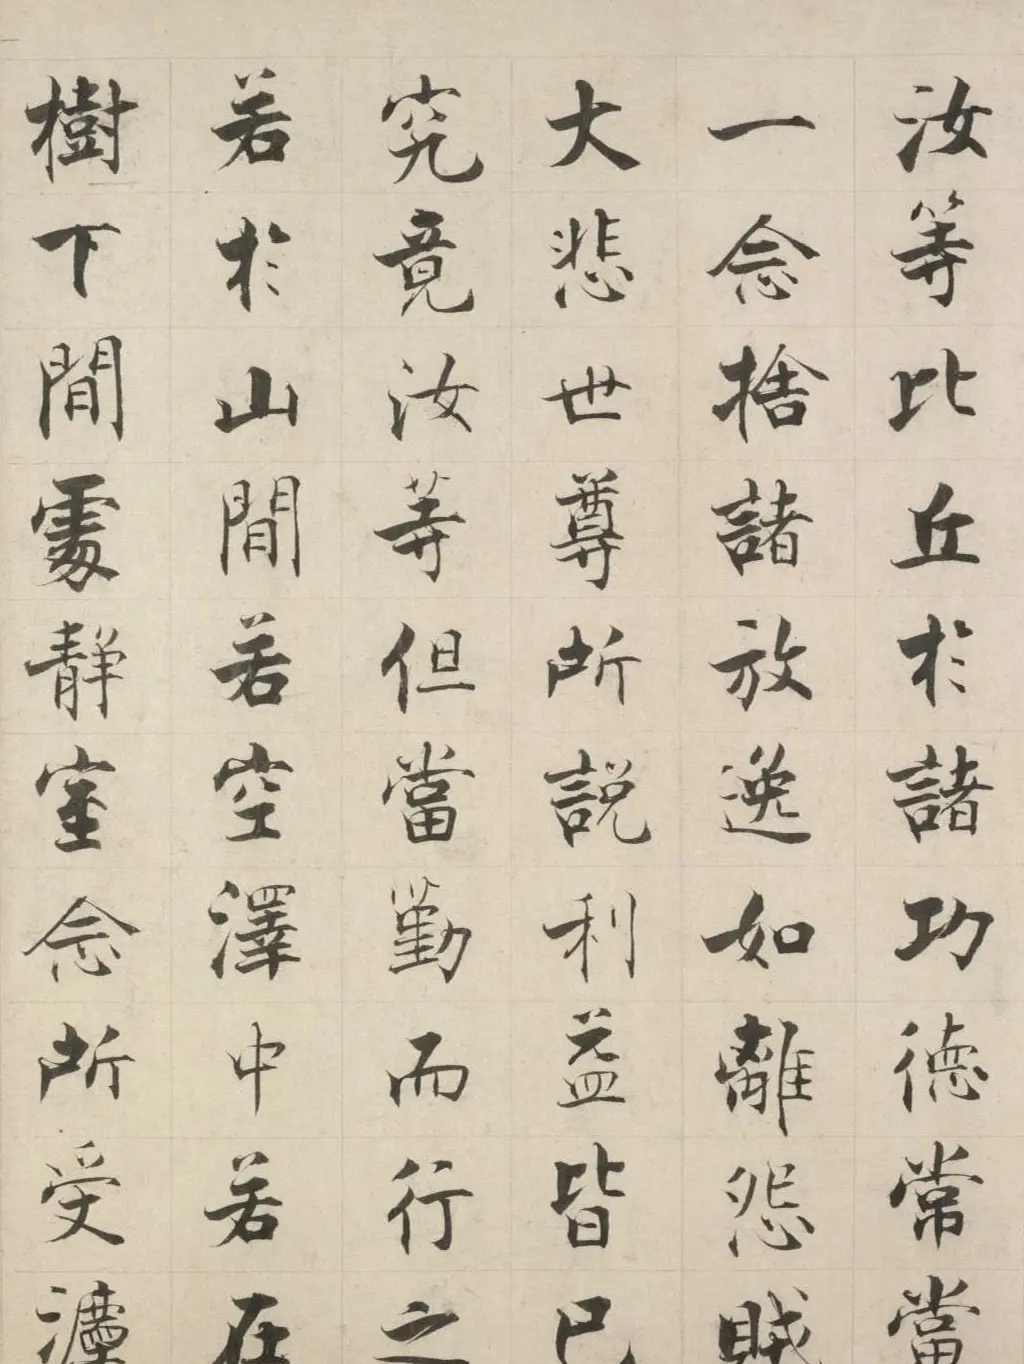 汝等比丘於諸功德常當
一念捨諸放逸如離怨賊
大悲世尊所說利益皆已
究竟汝等但當勤而行之
若於山間若空澤中若在
樹下間處靜室念所受